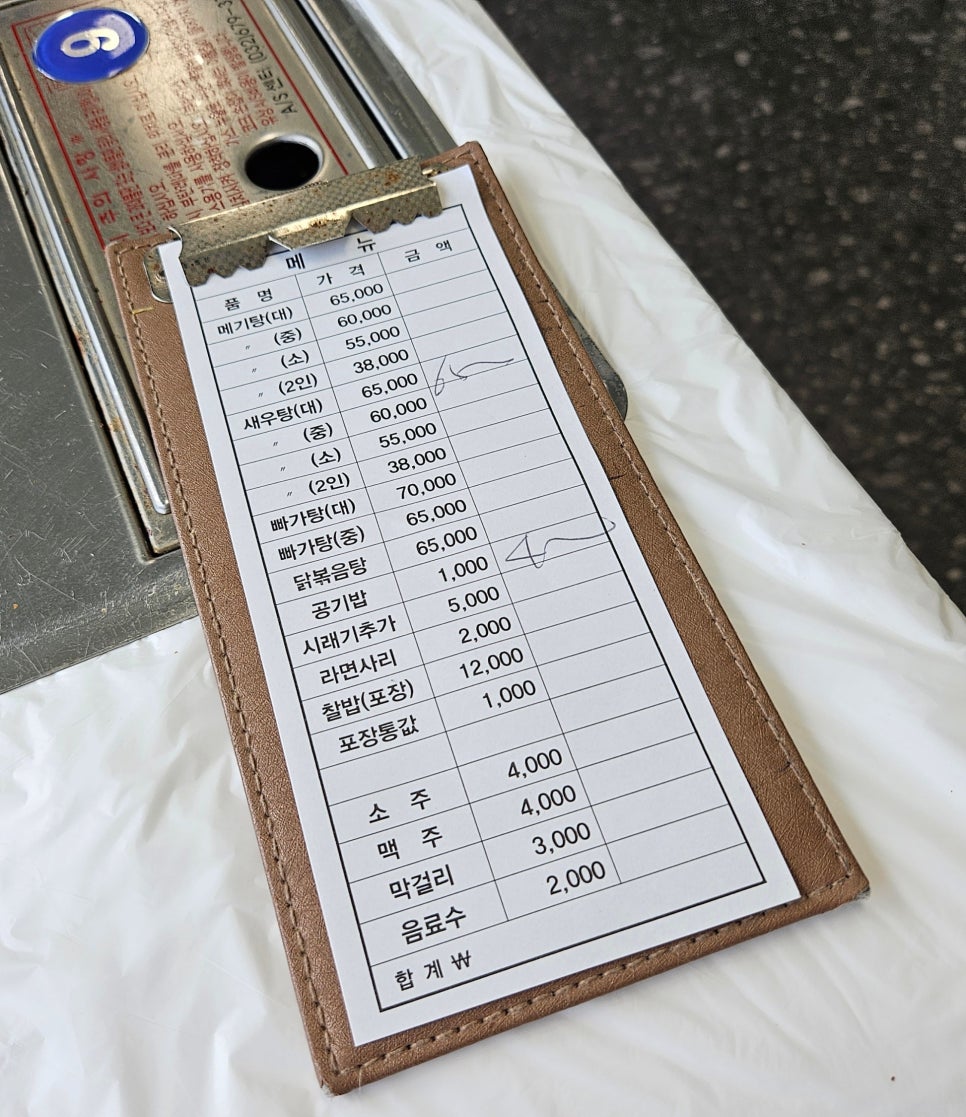 6
A/S 센터 (032)679-3
메 뉴
품 명 가 격 금 액
메기탕(대) 65,000
〃 (중) 60,000
〃 (소) 55,000
〃 (2인) 38,000
새우탕(대) 65,000 65
〃 (중) 60,000
〃 (소) 55,000
〃 (2인) 38,000
빠가탕(대) 70,000
빠가탕(중) 65,000
닭볶음탕 65,000
공기밥 1,000 4
시래기추가 5,000
라면사리 2,000
찰밥(포장) 12,000
포장통값 1,000
소 주 4,000
맥 주 4,000
막걸리 3,000
음료수 2,000
합 계 ₩